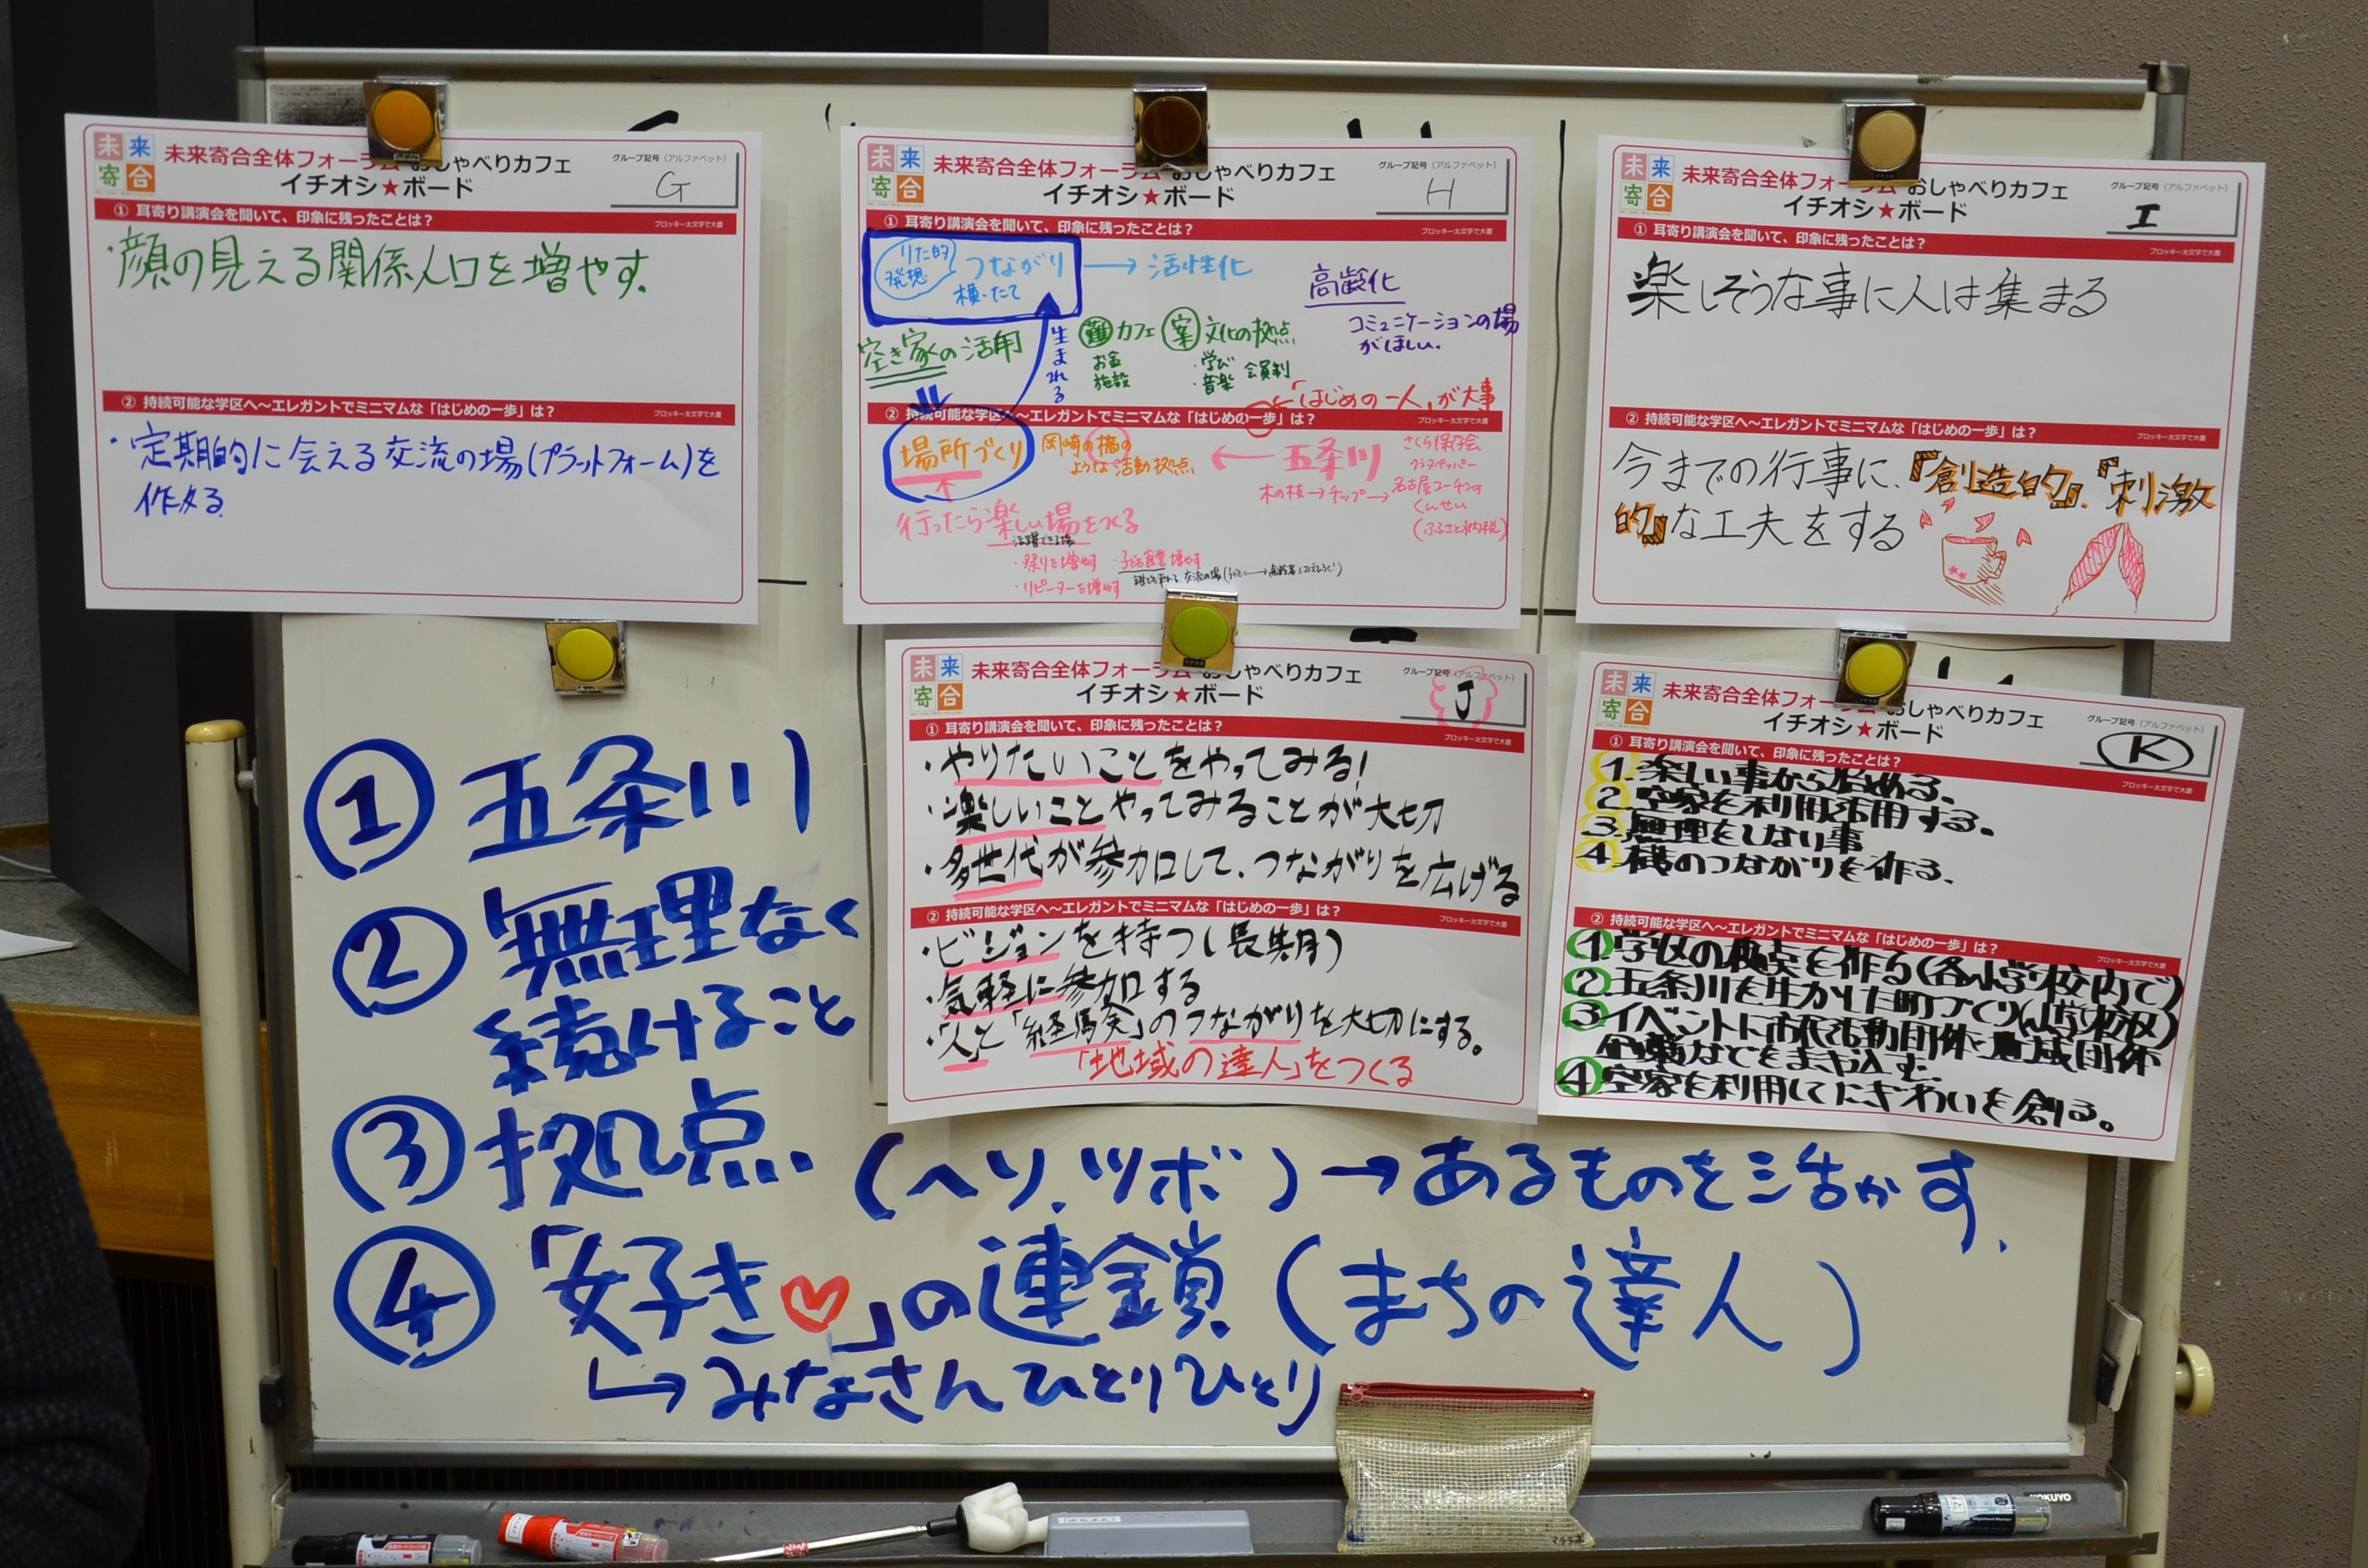 未来寄合
未来寄合全体フォーラム おしゃべりカフェ
イチオシ★ボード
グループ記号（アルファベット）
G
① 耳寄り講演会を聞いて、印象に残ったことは？
プロッキー太文字で大書
・顔の見える関係人口を増やす。
② 持続可能な学区へ～エレガントでミニマムな「はじめの一歩」は？
プロッキー太文字で大書
・定期的に会える交流の場(プラットフォーム)を
作る
未来寄合
未来寄合全体フォーラム おしゃべりカフェ
イチオシ★ボード
グループ記号（アルファベット）
H
① 耳寄り講演会を聞いて、印象に残ったことは？
プロッキー太文字で大書
りた的
発想
つながり
横・たて
→ 活性化
高齢化
コミュニケーションの場
がほしい。
空き家の活用
生まれる
難 カフェ
お金
施設
案 文化の拠点
・学び
・音楽 会員制
「はじめの一人」が大事
② 持続可能な学区へ～エレガントでミニマムな「はじめの一歩」は？
プロッキー太文字で大書
場所づくり
岡崎の橋の
ような活動拠点
← 五条川
さくら保存会
クラフトペッパー
木の枝→チップ→名古屋コーチンの
くんせい
(ふるさと納税)
行ったら楽しい場をつくる
活躍できる場
・祭りを増やす ・子ども食堂増やす
・リピーターを増やす
未来寄合
未来寄合全体フォーラム おしゃべりカフェ
イチオシ★ボード
グループ記号（アルファベット）
I
① 耳寄り講演会を聞いて、印象に残ったことは？
プロッキー太文字で大書
楽しそうな事に人は集まる
② 持続可能な学区へ～エレガントでミニマムな「はじめの一歩」は？
プロッキー太文字で大書
今までの行事に、『創造的』、『刺激
的』な工夫をする
未来寄合
未来寄合全体フォーラム おしゃべりカフェ
イチオシ★ボード
グループ記号（アルファベット）
J
① 耳寄り講演会を聞いて、印象に残ったことは？
プロッキー太文字で大書
・やりたいことをやってみる！
・楽しいことやってみることが大切
・多世代が参加して、つながりを広げる
② 持続可能な学区へ～エレガントでミニマムな「はじめの一歩」は？
プロッキー太文字で大書
・ビジョンを持つ(長期)
・気軽に参加する
・「人」と「経験」のつながりを大切にする。
「地域の達人」をつくる
未来寄合
未来寄合全体フォーラム おしゃべりカフェ
イチオシ★ボード
グループ記号（アルファベット）
K
① 耳寄り講演会を聞いて、印象に残ったことは？
プロッキー太文字で大書
1. 楽しい事から始める、
2. 空家を利用活用する。
3. 無理をしない事
4. 横のつながりを作る、
② 持続可能な学区へ～エレガントでミニマムな「はじめの一歩」は？
プロッキー太文字で大書
1. 学区の拠点を作る(各小学校内で)
2. 五条川を生かした町づくり
3. イベントに市民活動団体・地域団体
企業などをまき込む、
4. 空家を利用してにぎわいを創る。
① 五条川
② 無理なく
続けること
③ 拠点 (ヘソ、ツボ)→あるものを活かす、
④ 「好き♡」の連鎖 (まちの達人)
↳みなさんひとりひとり
KOKUYO